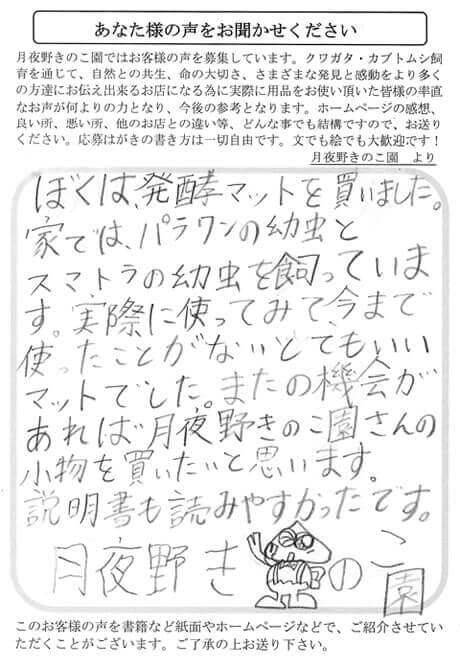 あなた様の声をお聞かせください
月夜野きのこ園ではお客様の声を募集しています。クワガタ・カブトムシ飼
育を通じて、自然との共生、命の大切さ、さまざまな発見と感動をより多く
の方達にお伝え出来るお店になる為に実際に用品をお使い頂いた皆様の率直
なお声が何よりの力となり、今後の参考となります。ホームページの感想、
良い所、悪い所、他のお店との違い等、どんな事でも結構ですので、お送り
ください。応募はがきの書き方は一切自由です。文でも絵でも大歓迎です！
月夜野きのこ園　より
ぼくは、発酵マットを買いました。
家では、パラワンの幼虫と
スマトラの幼虫を飼っていま
す。実際に使ってみて、今まで
使ったことがないとてもいい
マットでした。またの機会が
あれば月夜野きのこ園さんの
小物を買いたいと思います。
説明書も読みやすかったです。
月夜野きのこ園
このお客様の声を書籍など紙面やホームページなどで、ご紹介させてい
ただくことがございます。ご了承の上お送り下さい。